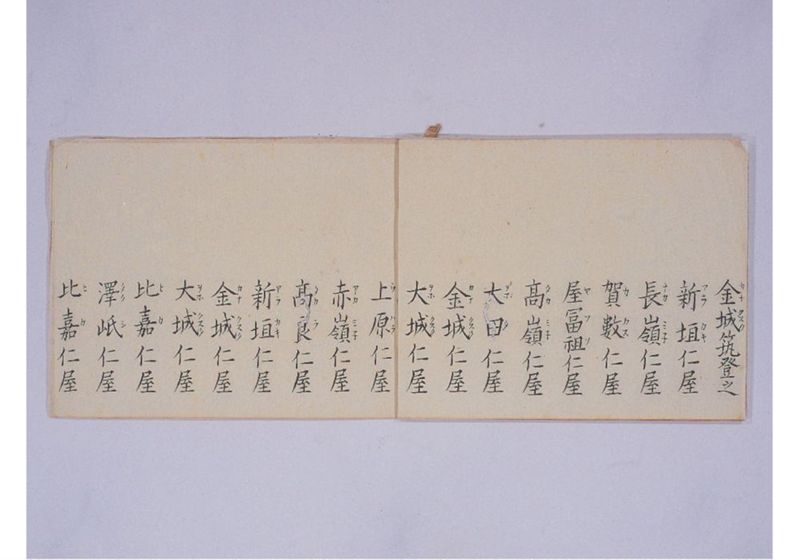 金城筑登之
新垣仁屋
長嶺仁屋
賀數仁屋
屋冨祖仁屋
高嶺仁屋
大田仁屋
金城仁屋
大城仁屋
上原仁屋
赤嶺仁屋
髙良仁屋
新垣仁屋
金城仁屋
大城仁屋
比嘉仁屋
澤岻仁屋
比嘉仁屋